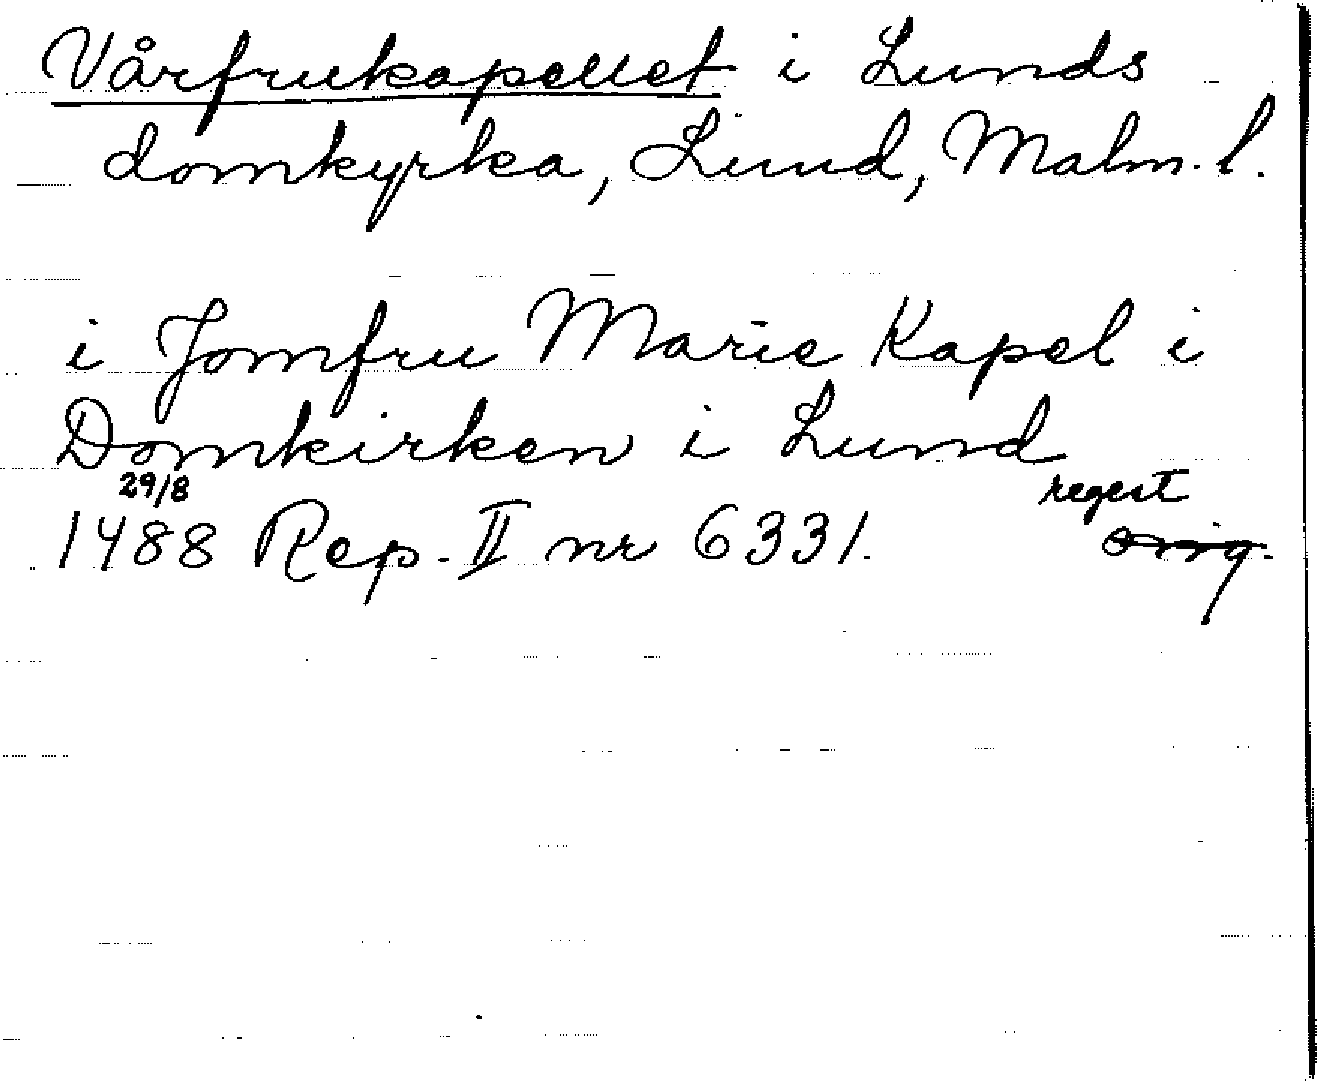 Vårfrukapellet i Lunds
domkyrka, Lund, Malm. l.
i Jomfru Marie Kapel i
Domkirken i Lund
29/8 regest
1488 Rep. II nr 6331. orig.